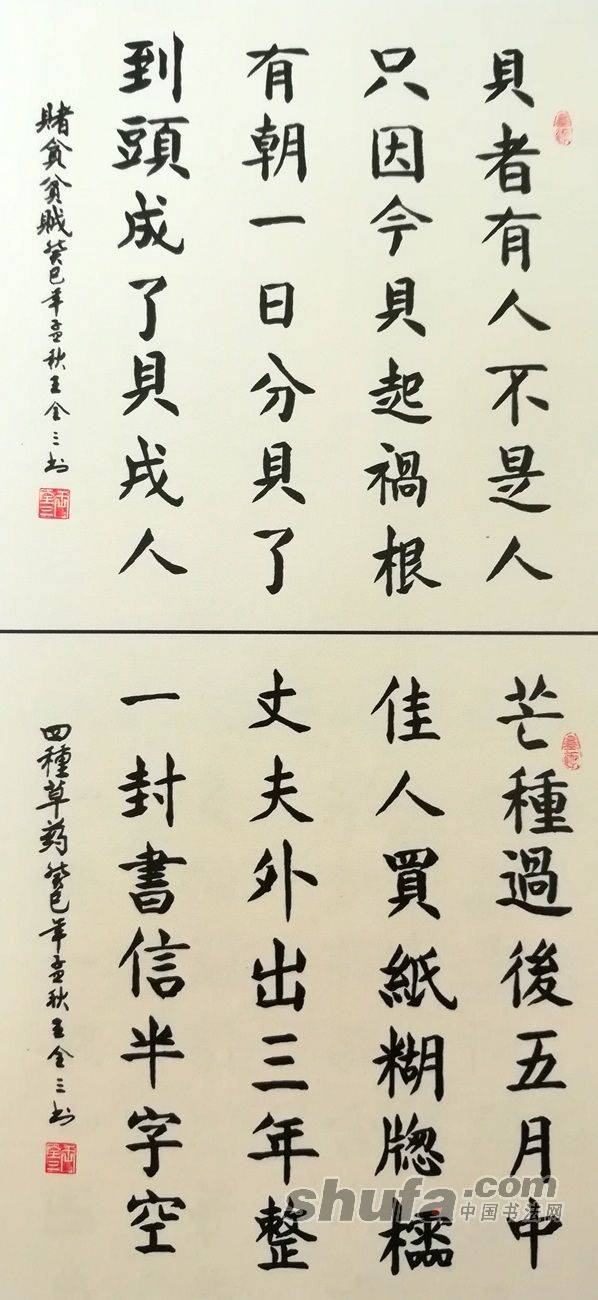 貝者有人不是人
只因今貝起禍根
有朝一日分貝了
到頭成了貝戎人
賭貪貧賊癸巳年孟秋王全三书
芒種過後五月中
佳人買紙糊牕櫺
丈夫外出三年整
一封書信半字空
四種草药癸巳年孟秋王全三书
shufa.com
中国书法网